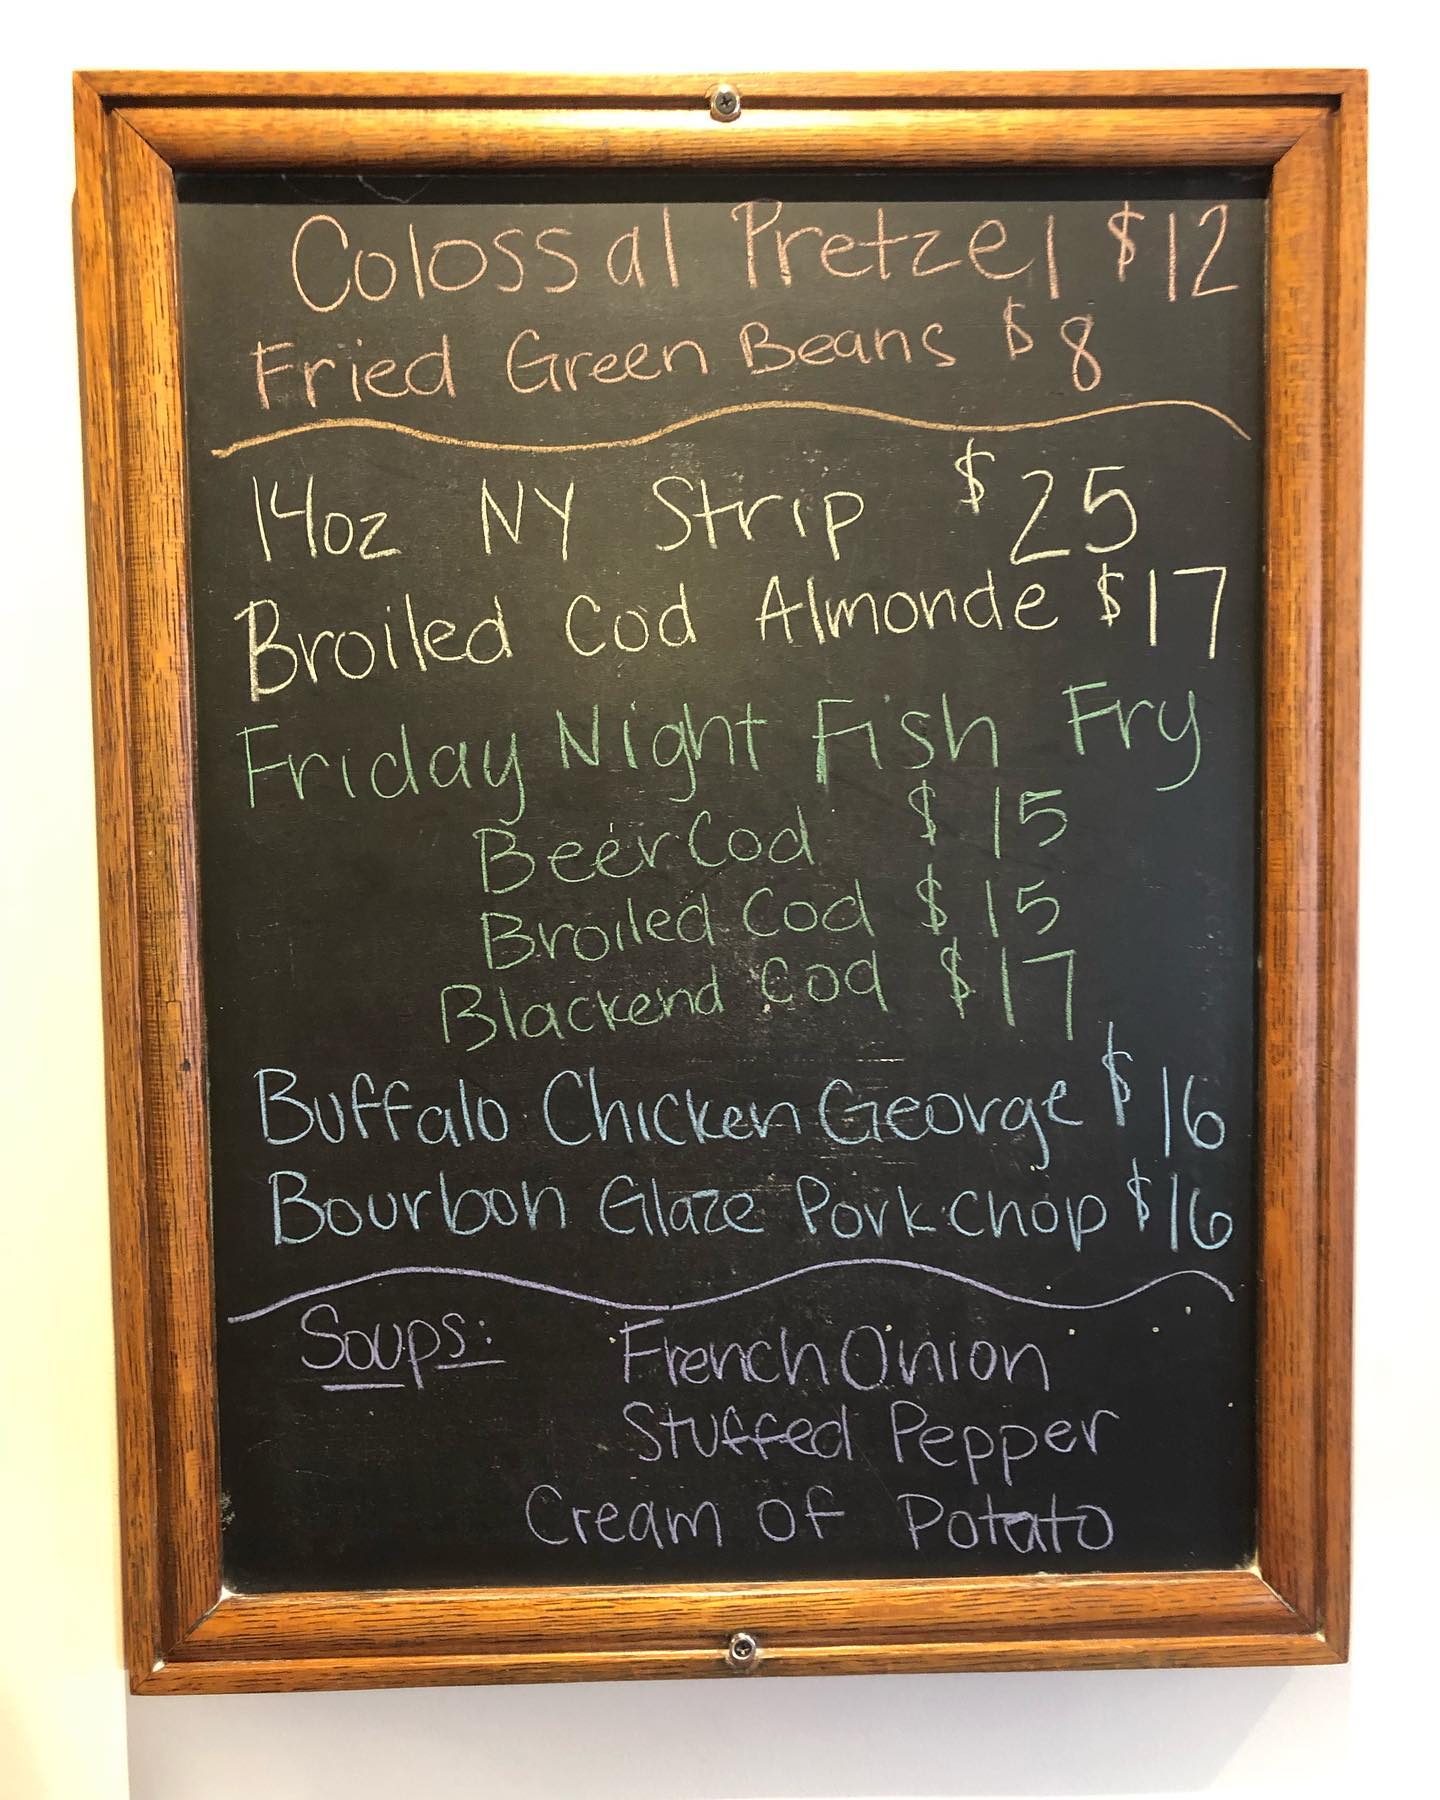 Colossal Pretzel $12
Fried Green Beans $8
14oz NY Strip $25
Broiled Cod Almonde $17
Friday Night Fish Fry
Beer Cod $15
Broiled Cod $15
Blackend Cod $17
Buffalo Chicken George $16
Bourbon Glaze Pork Chop $16
Soups: French Onion
Stuffed Pepper
Cream of Potato